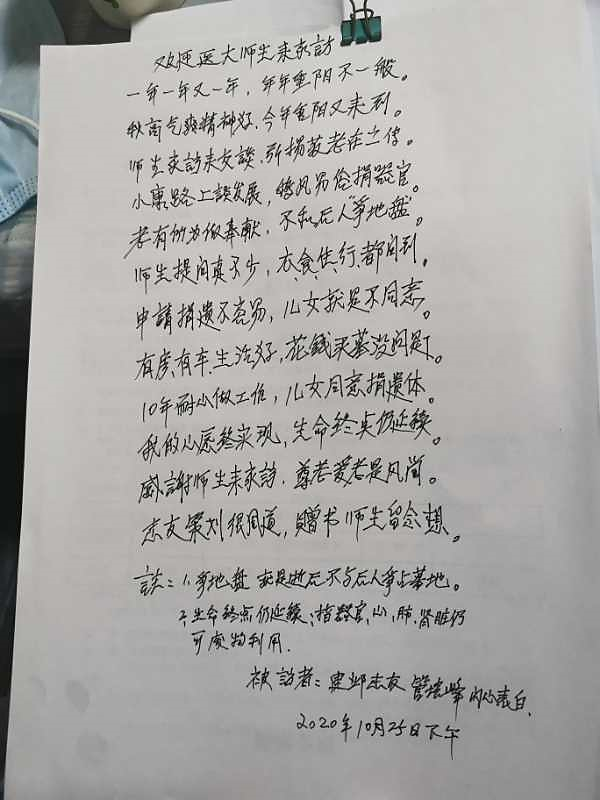 欢迎医大师生来家訪
一年一年又一年，年年重阳不一般。
秋高气爽精神好，今年重阳又来到。
师生家訪来交談，弘揚敬老在上传。
小康路上談发展，移风易俗捐器官。
老有所为做奉献，不和后人“争地盘”。
师生提问真不少，衣、食、住、行、都问到。
申請捐遺不容易，儿女就是不同意。
有房有车生活好，花錢买墓没问题。
10年耐心做工作，儿女同意捐遺体。
我的心愿終实现，生命终点仍延續。
感謝师生来家訪，尊老爱老是风尚。
志友策划很周道，赠书师生留念想。
註：1，争地盘 就是逝后不与后人争占墓地。
2，生命终点仍延續：指器官，心、肺、肾脏仍
可废物利用．
被訪者：志友 管 峰内心表白．
2020年10月25日下午